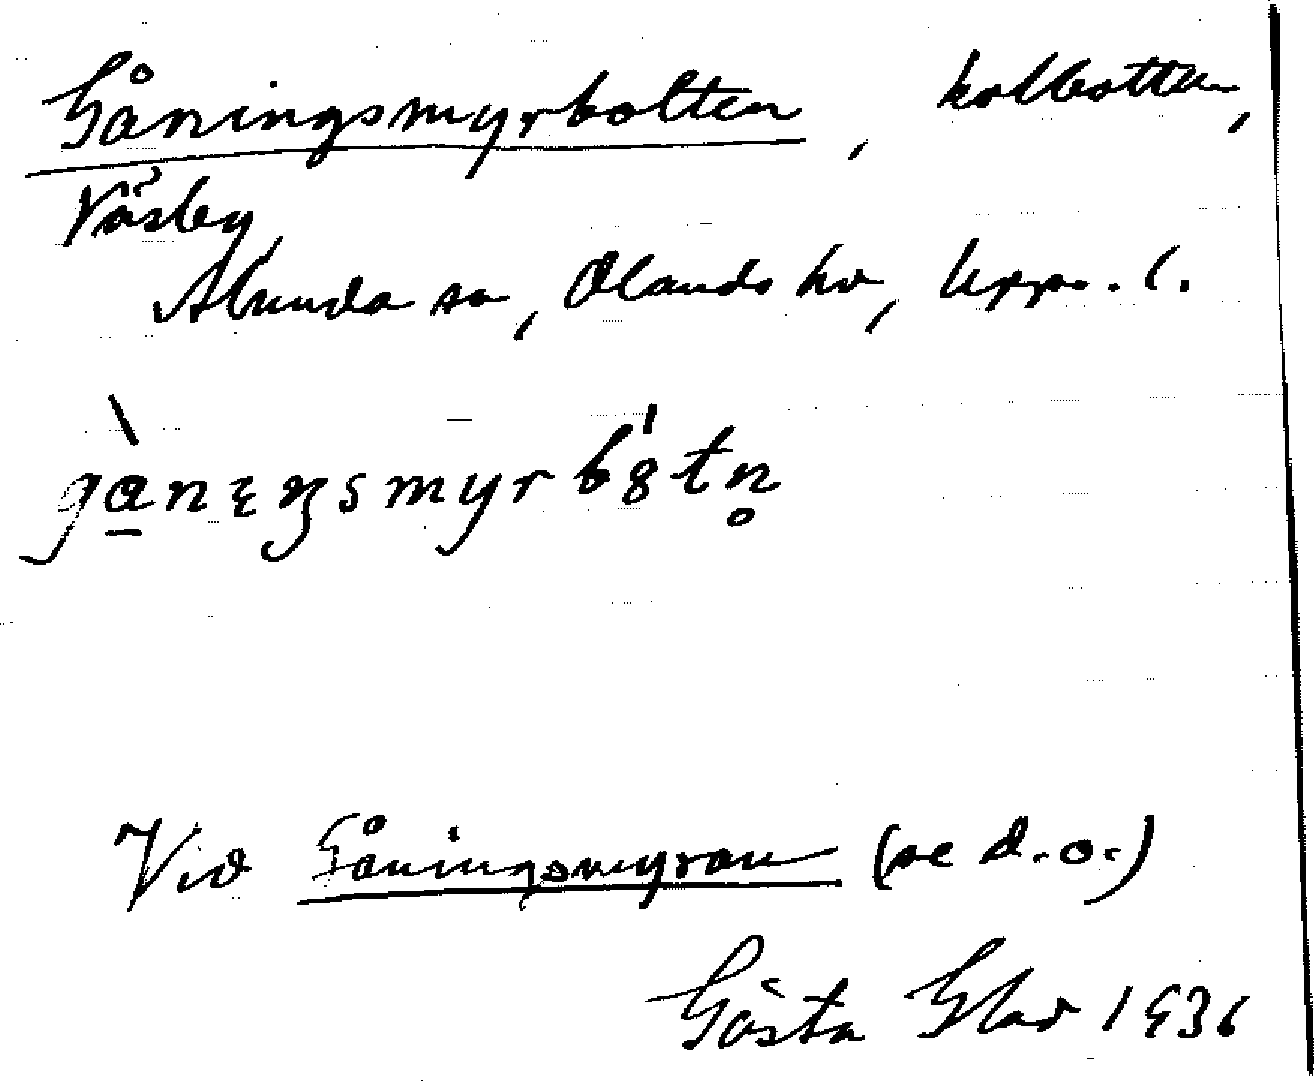 Gåningsmyrbotten, kolbotten,
Väsby
Alunda sn, Olands hd, Upps. l.
gànıŋsmyrbȣ́tn̥
Vid Gåningsmyran (se d.o.)
Gösta Glad 1936